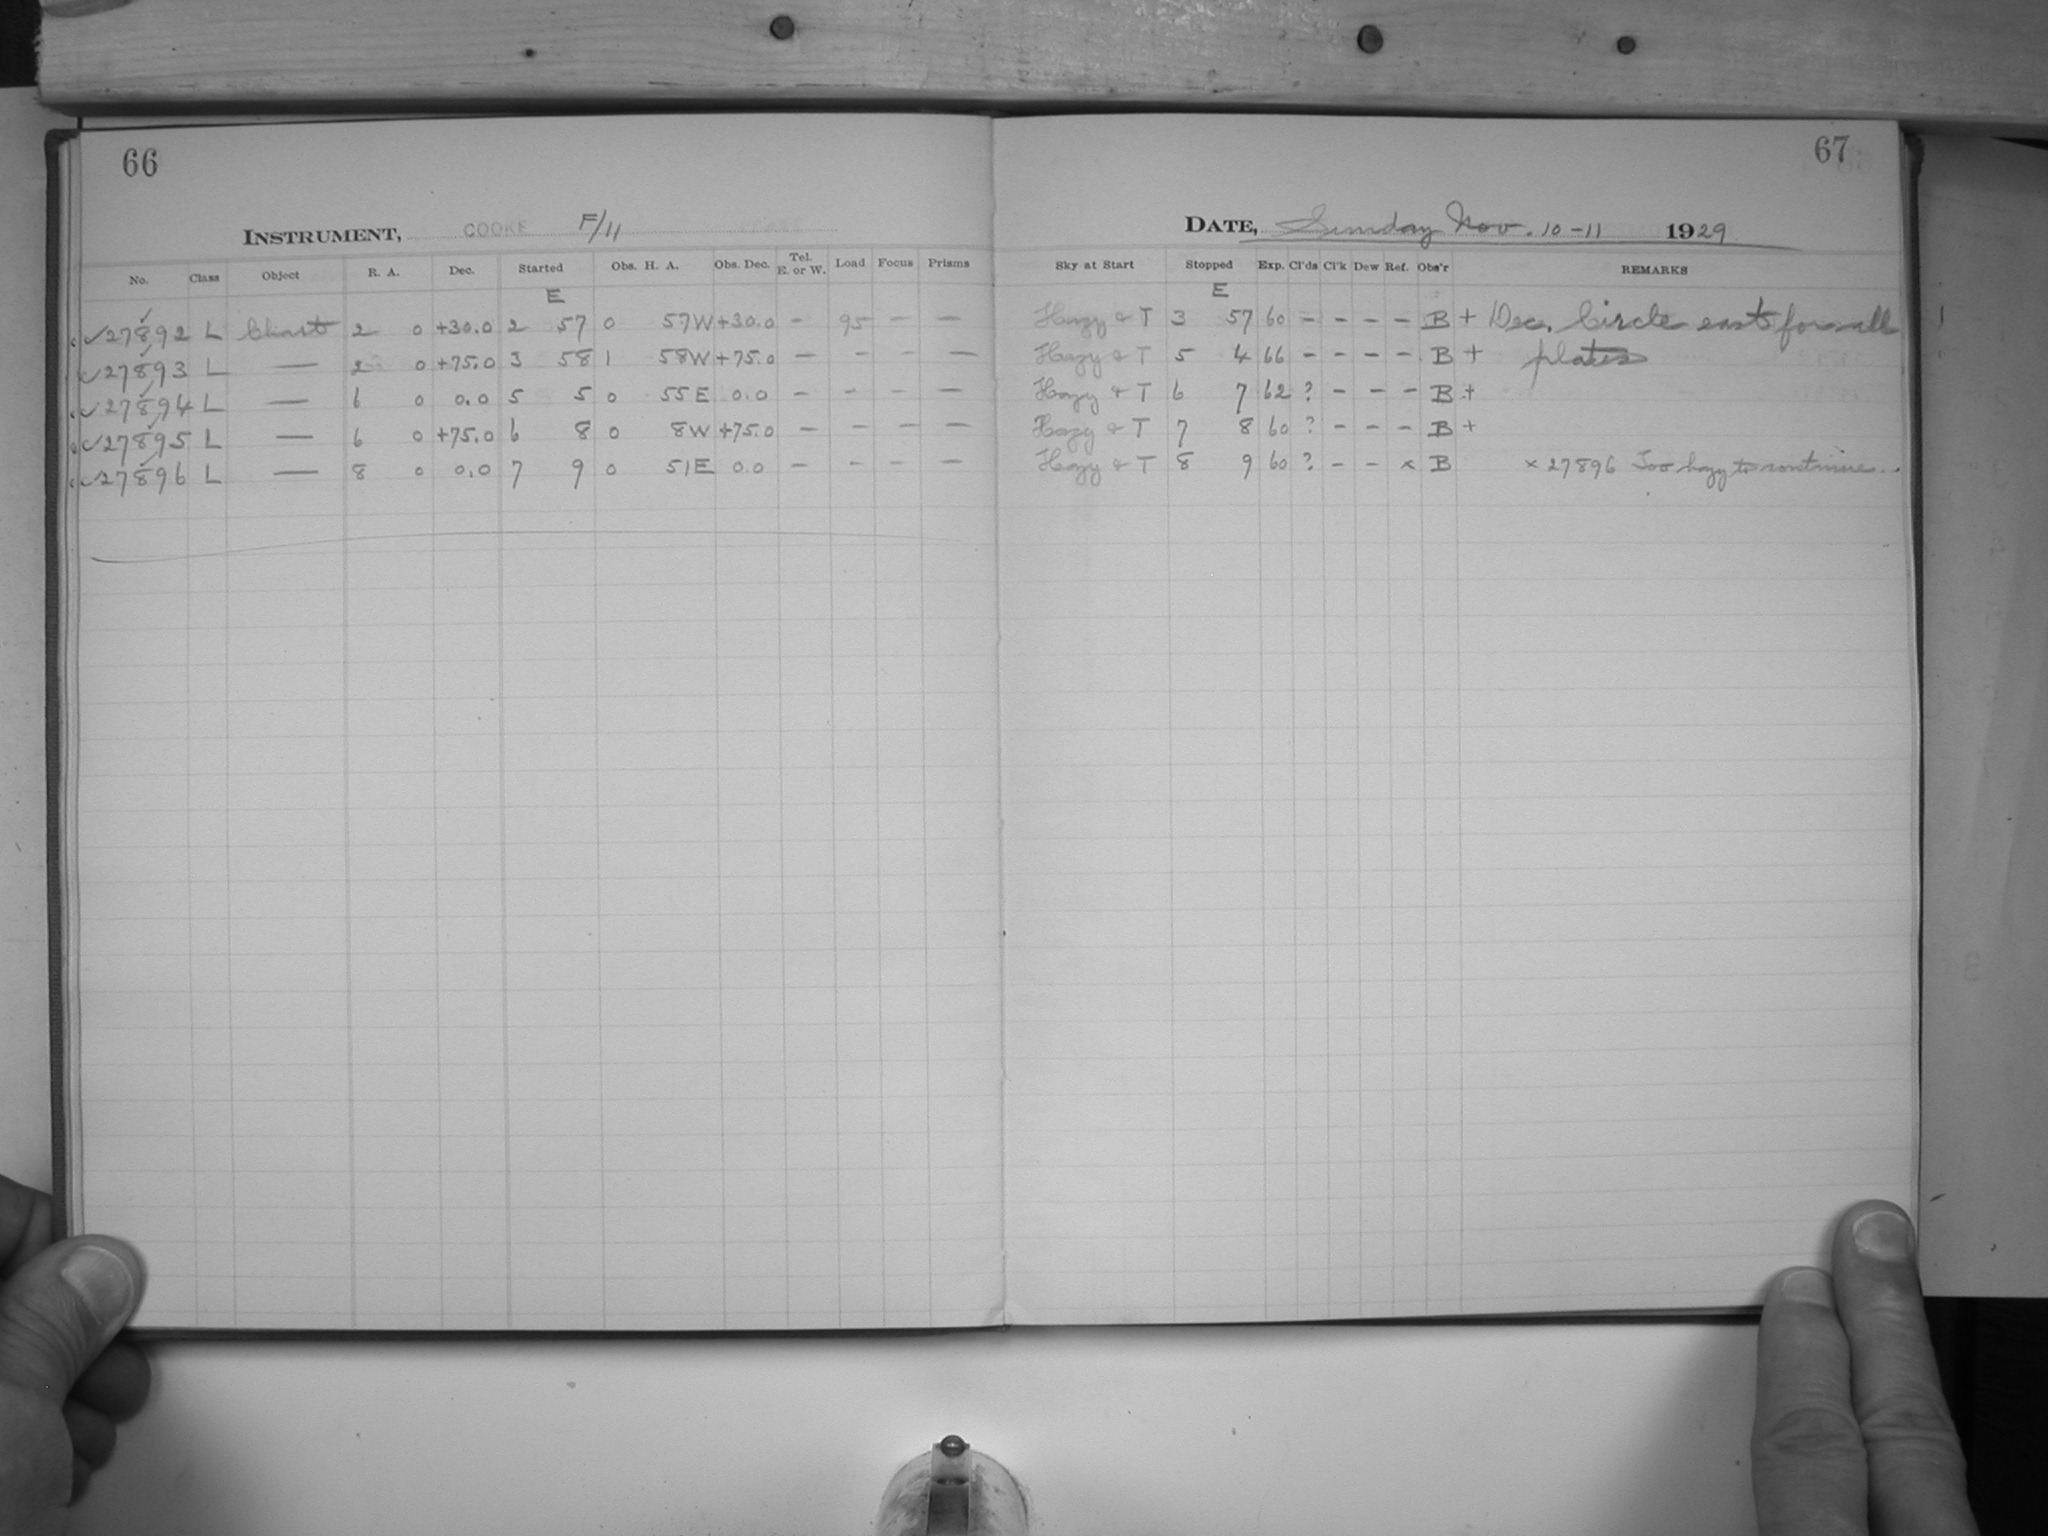 66
INSTRUMENT, COOKE F/11
No. Class Object R. A. Dec. Started Obs. H. A. Obs. Dec. Tel. E. or W. Load Focus Prisms
E
✓27892 L Chart 2 0 +30.0 2 57 0 57W +30.0 - 95 - -
✓27893 L — 2 0 +75.0 3 58 1 58W +75.0 - - - -
✓27894 L — 6 0 0.0 5 5 0 55E 0.0 - - - -
✓27895 L — 6 0 +75.0 6 8 0 8W +75.0 - - - -
✓27896 L — 8 0 0.0 7 9 0 51E 0.0 - - - -
67
DATE, Sunday Nov. 10-11 1929
Sky at Start Stopped Exp. Cl'ds Cl'k Dew Ref. Obs'r REMARKS
E
Hazy & T 3 57 60 - - - - B + Dec. Circle east for all
Hazy & T 5 4 66 - - - - B + plates
Hazy & T 6 7 62 ? - - - B +
Hazy & T 7 8 60 ? - - - B +
Hazy & T 8 9 60 ? - - x B x 27896 Too hazy to continue.